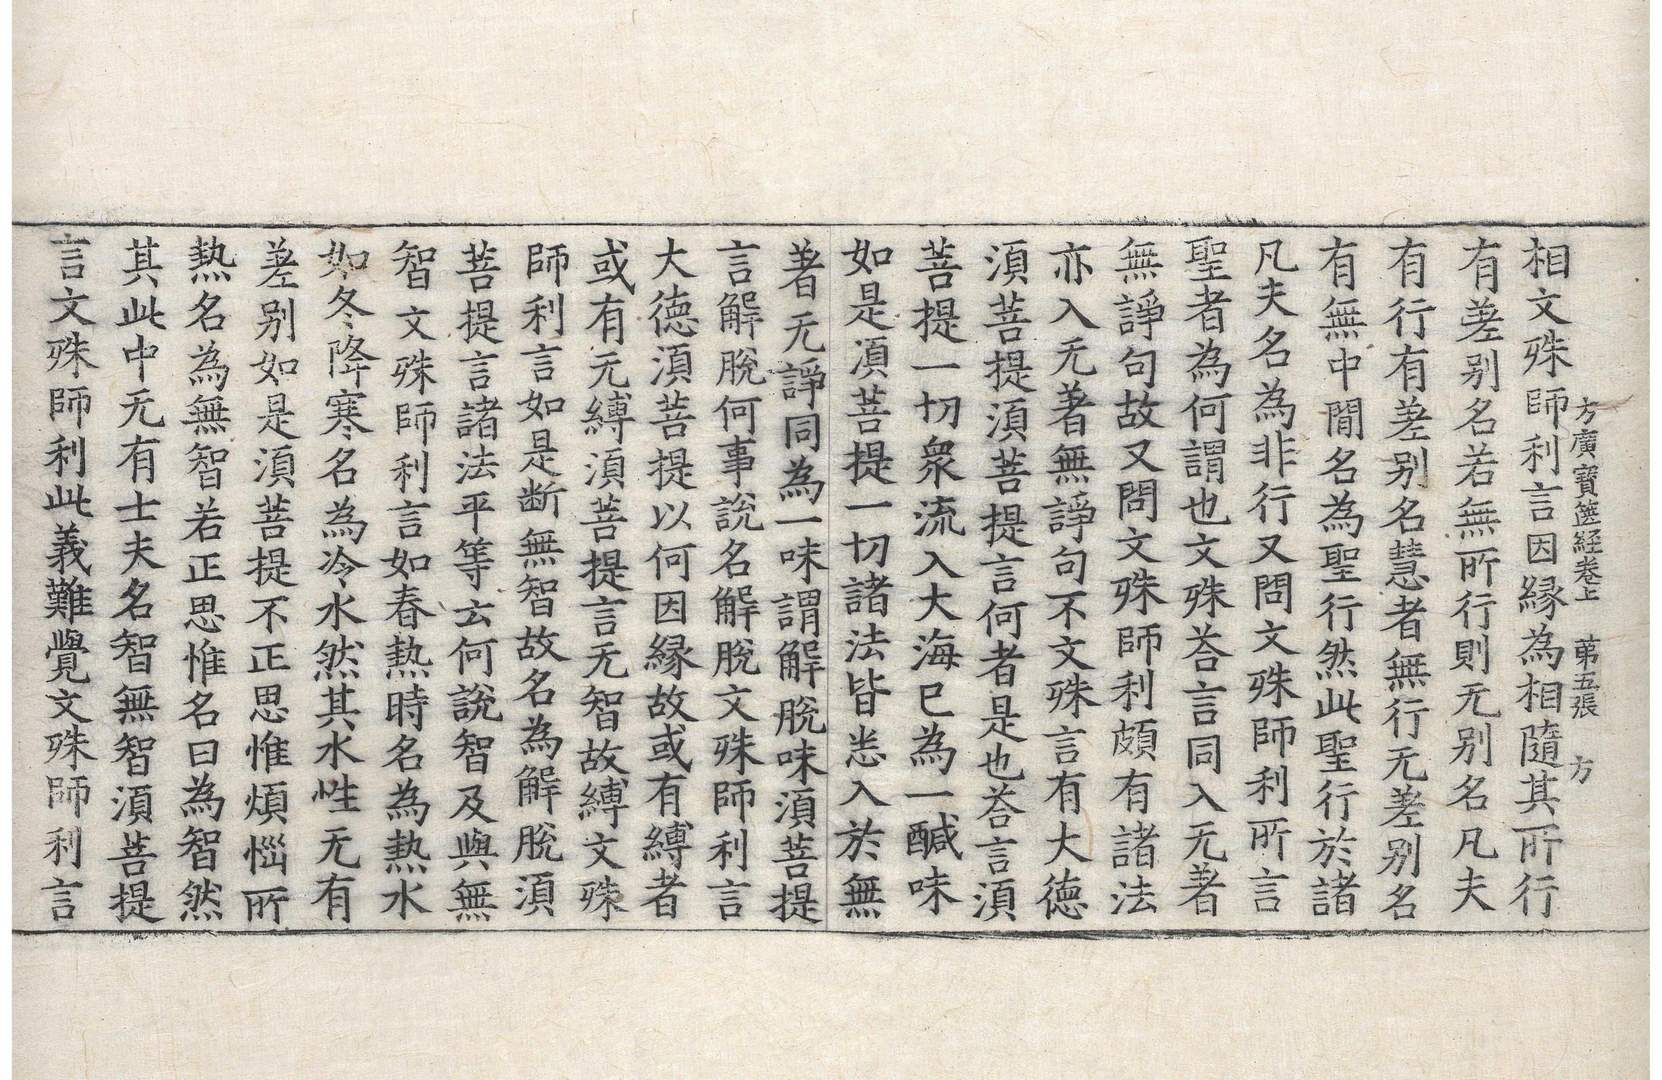 方廣寶篋経卷上　第五張　方
相文殊師利言因縁為相隨其所行
有差别名若無所行則无别名凡夫
有行有差别名慧者無行无差别名
有無中間名為聖行然此聖行於諸
凡夫名為非行又問文殊師利所言
聖者為何謂也文殊荅言同入无著
無諍句故又問文殊師利頗有諸法
亦入无著無諍句不文殊言有大德
湏菩提湏菩提言何者是也荅言湏
菩提一切衆流入大海已為一醎味
如是湏菩提一切諸法皆悉入於無
著无諍同為一味謂解脫味湏菩提
言解脫何事說名解脫文殊師利言
大德湏菩提以何因縁故或有縛者
或有无縛湏菩提言无智故縛文殊
師利言如是断無智故名為解脫湏
菩提言諸法平等云何說智及與無
智文殊師利言如春熱時名為熱水
如冬降寒名為冷水然其水性无有
差别如是湏菩提不正思惟煩惱所
熱名為無智若正思惟名曰為智然
其此中无有士夫名智無智湏菩提
言文殊師利此義難覺文殊師利言